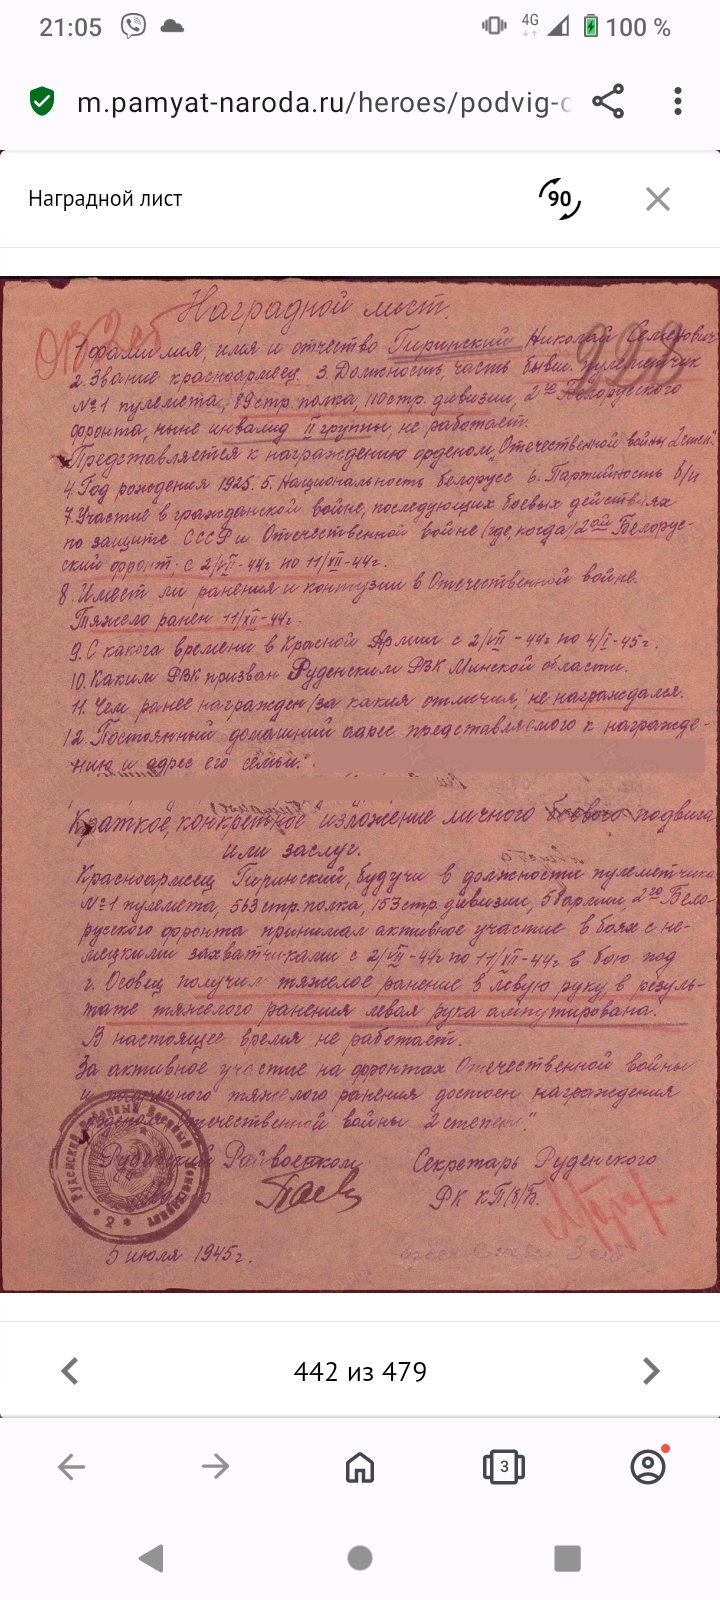 21:05
4G
100 %
m.pamyat-naroda.ru/heroes/podvig-c
Наградной лист
90
Наградной лист.
1. Фамилия, имя и отчество Гиринский Николай Семенович
2. Звание красноармеец. 3. Должность, часть бывш. пулеметчик
№1 пулемета, 89 стр. полка, 110 стр. дивизии, 2го Белорусского
фронта, ныне инвалид II группы, не работает.
Представляется к награждению орденом „Отечественной войны 2 степ."
4. Год рождения 1925. 5. Национальность белорусс 6. Партийность б/п
7. Участие в гражданской войне, последующих боевых действиях
по защите СССР и Отечественной войне (где, когда) 2ой Белорус-
ский фронт. с 2/VII-44г по 11/XII-44г.
8. Имеет ли ранения и контузии в Отечественной войне.
Тяжело ранен 11/XII-44г.
9. С какога времени в Красной Армии с 2/VII-44г по 4/I-45г.
10. Каким РВК призван Руденским РВК Минской области.
11. Чем ранее награжден (за какия отличия) не награждался.
12. Постоянный домашний адрес представляемого к награжде-
нию и адрес его семьи.
Краткое, конкретное изложение личного боевого подвига
или заслуг.
Красноармеец Гиринский, будучи в должности пулеметчика
№1 пулемета, 563 стр. полка, 153 стр. дивизии, 50 армии, 2го Бело-
русского фронта принимал активное участие в боях с не-
мецкими захватчиками с 2/VII-44г по 11/XII-44г в бою под
г. Осовец получил тяжелое ранение в левую руку, в резуль-
тате тяжелого ранения левая рука ампутирована.
В настоящее время не работает.
За активное участие на фронтах Отечественной войны
и полученного тяжелого ранения достоен награждения
орденом „Отечественной войны 2 степени."
Руденский Райвоенком
Секретарь Руденского
РК КП(б)Б.
Руденский Районный Военный Комиссариат
2
5 июля 1945г.
442 из 479
3